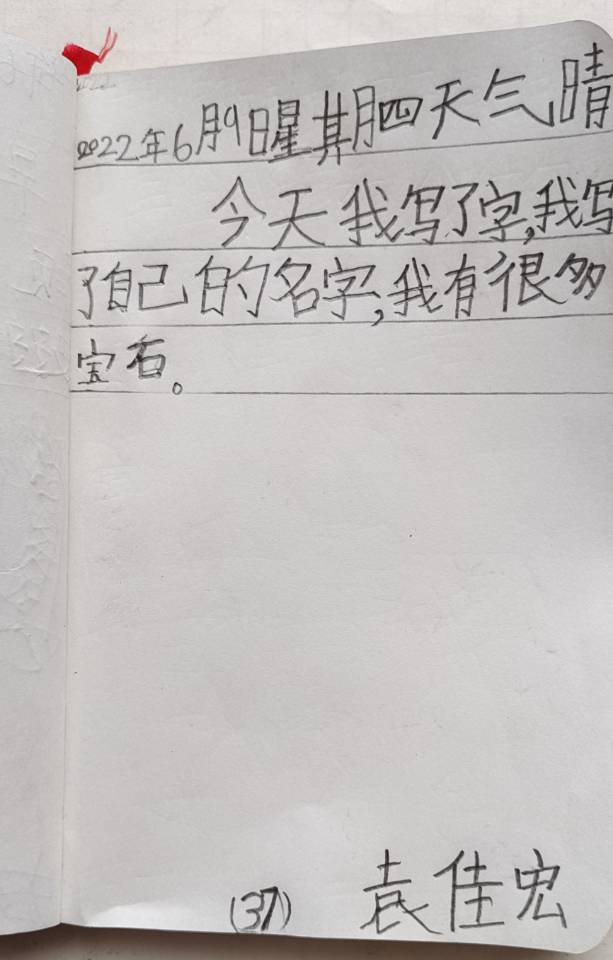 2022年6月9日星其月四天气晴
今天我写了字,我写
了自己的名字,我有很多
宝石。
(37) 袁佳宏